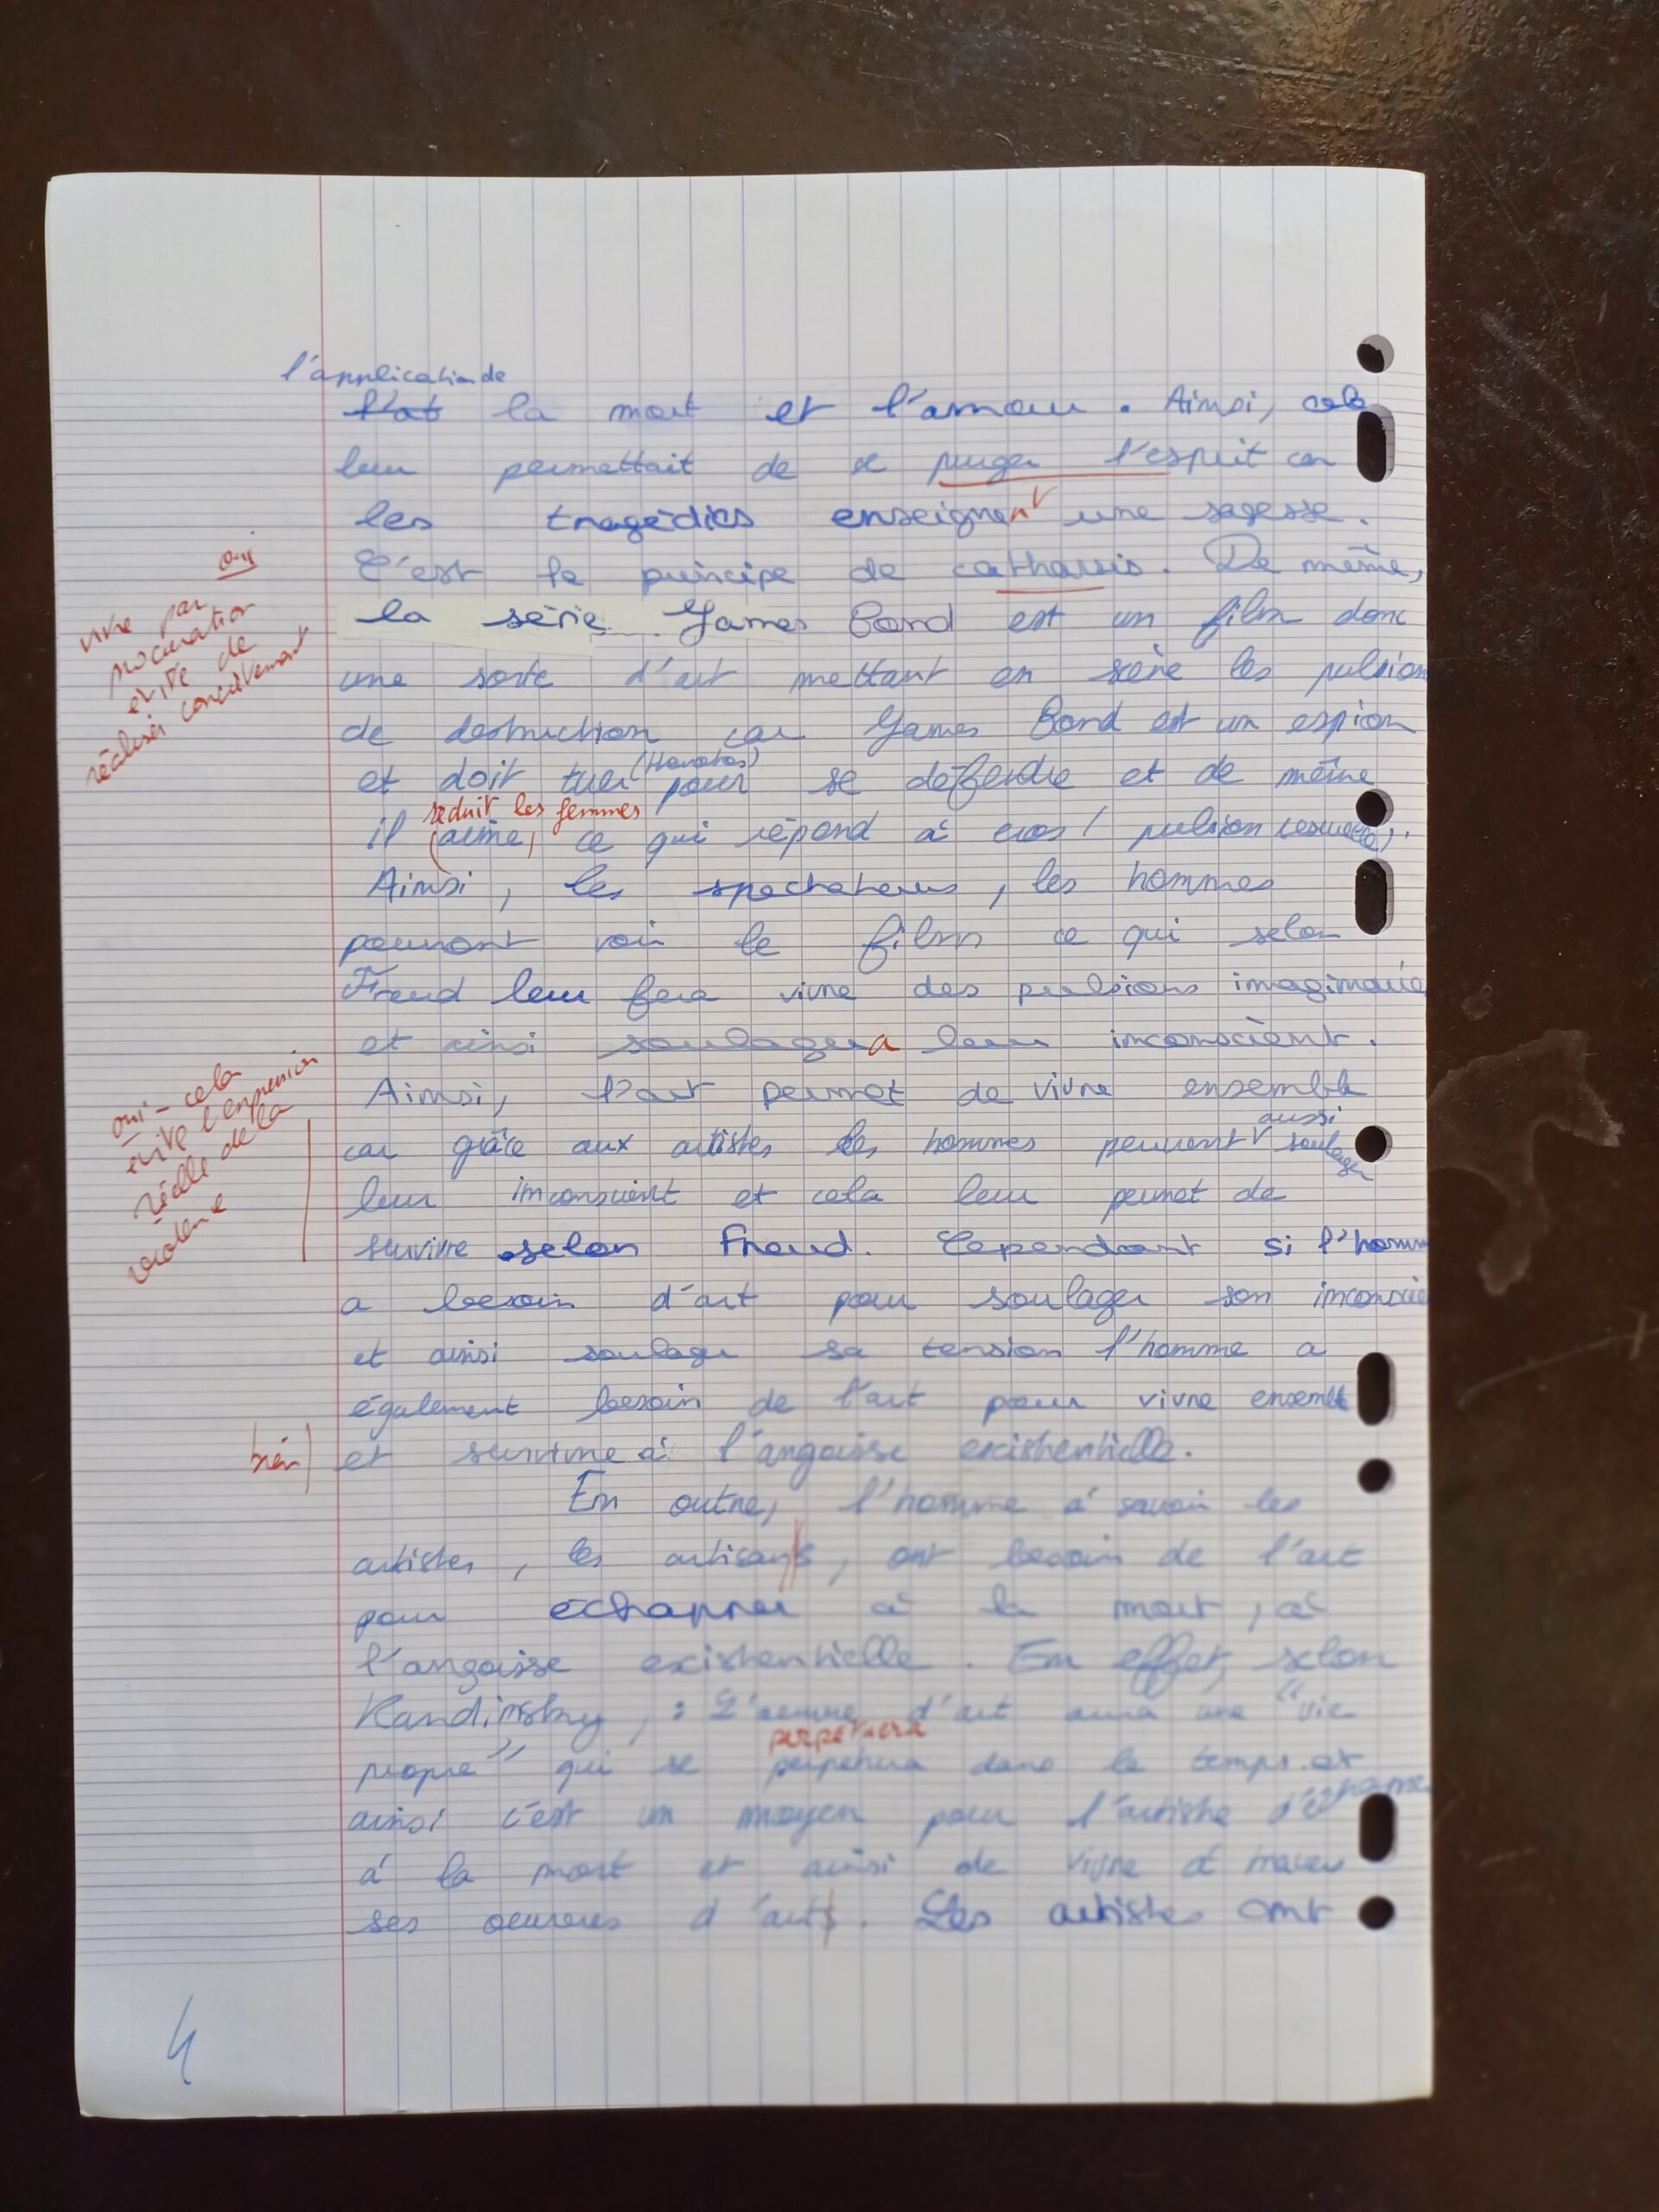 l'application de
l'at la mort et l'amour. Ainsi, cela
leur permettait de se purger l'esprit car
les tragédies enseignent une sagesse.
oui
C'est le principe de catharsis. De même,
vivre par
procuration
évite de
réaliser concrètement
la série James Bond est un film donc
une sorte d'art mettant en scène les pulsion
de destruction car James Bond est un espion
(thanatos)
et doit tuer pour se défendre et de même
séduit les femmes
il (aime, ce qui répond à eros / pulsion sexuelle).
Ainsi, les spectateurs, les hommes
pourront voir le film ce qui selon
Freud leur fera vivre des pulsions imaginaire
et ainsi soulagera leur inconscient.
oui - cela
évite l'expression
réelle de la
violence
Ainsi, l'art permet de vivre ensemble
aussi
car grâce aux artistes les hommes peuvent soulager
leur inconscient et cela leur permet de
survivre selon Freud. Cependant si l'homm
a besoin d'art pour soulager son inconscie
et ainsi soulager sa tension l'homme a
également besoin de l'art pour vivre ensemble
bien) et survivre à l'angoisse existentielle.
En outre, l'homme à savoir les
artistes, les artisans, ont besoin de l'art
pour échapper à la mort, à
l'angoisse existentielle. En effet, selon
Kandinsky, : L'oeuvre d'art aura une "vie
perpétuera
propre" qui se perpetura dans le temps et
ainsi c'est un moyen pour l'artiste d'échapper
à la mort et ainsi de vivre à travers
ses oeuvres d'arts. Les artistes ont
4